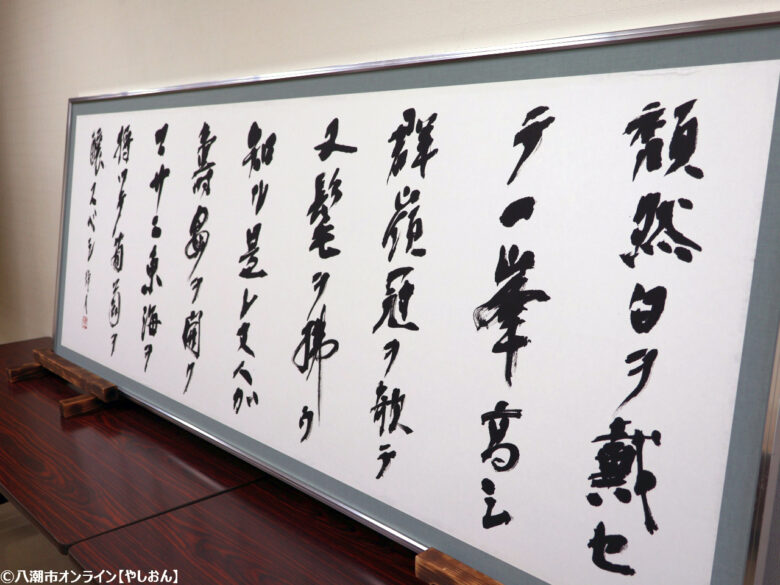 頽然白ヲ戴セ
テ一峯高シ
群嶺冠ヲ欹テ
又髦ヲ拂ウ
知ル是レ丈人ガ
壽宴ヲ開ク
マサニ東海ヲ
将ッテ葡萄ヲ
醸スベシ
©八潮市オンライン【やしおん】